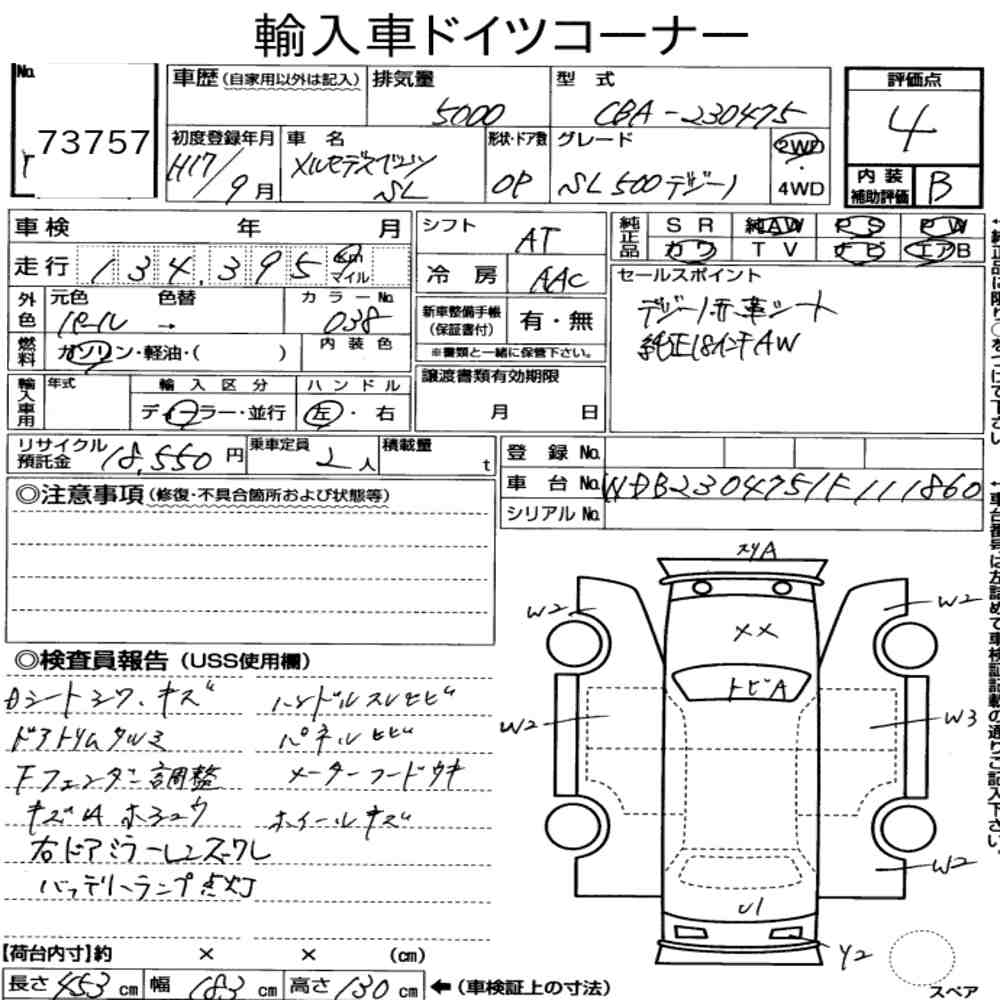 輸入車ドイツコーナー
No.
73757
車歴 (自家用以外は記入)
排気量
5000
型式
CBA-230475
評価点
4
初度登録年月
H17/9月
車名
メルセデスベンツ
SL
形状・ドア数
OP
グレード
SL500デジーノ
2WD
・
4WD
内装
補助評価
B
車検 年 月
シフト
AT
純正品
SR 純AW PS PW
カワ TV ナビ エアB
走行 134,395 km
マイル
冷房
AAC
セールスポイント
デジーノ赤革シート
純正18インチAW
外色
元色 色替 カラーNo.
パール → 038
新車整備手帳
(保証書付)
有・無
※書類と一緒に保管下さい。
燃料
ガソリン・軽油・( )
内装色
輸入車用
年式
輸入区分
ディーラー・並行
ハンドル
左・右
譲渡書類有効期限
月 日
リサイクル
預託金
18,550円
乗車定員
2人
積載量
t
登録No.
車台No. WDB2304751F111860
シリアルNo.
◎注意事項(修復・不具合箇所および状態等)
◎検査員報告(USS使用欄)
Dシートシワ、キズ
ハンドルスレヒビ
ドアトリムタルミ
パネルヒビ
Fフェンダー調整
メーターフードウキ
キズAホシュウ
ホイールキズ
右ドアミラーレンズワレ
バッテリーランプ点灯
スリA
W2
W2
××
トビA
W2
W3
W2
U1
Y2
スペア
【荷台内寸】約 × × (cm)
長さ 453 cm 幅 183 cm 高さ 130 cm ←(車検証上の寸法)
←純正品に限り○をつけて下さい
←車台番号は左詰めで車検証記載の通りご記入下さい。